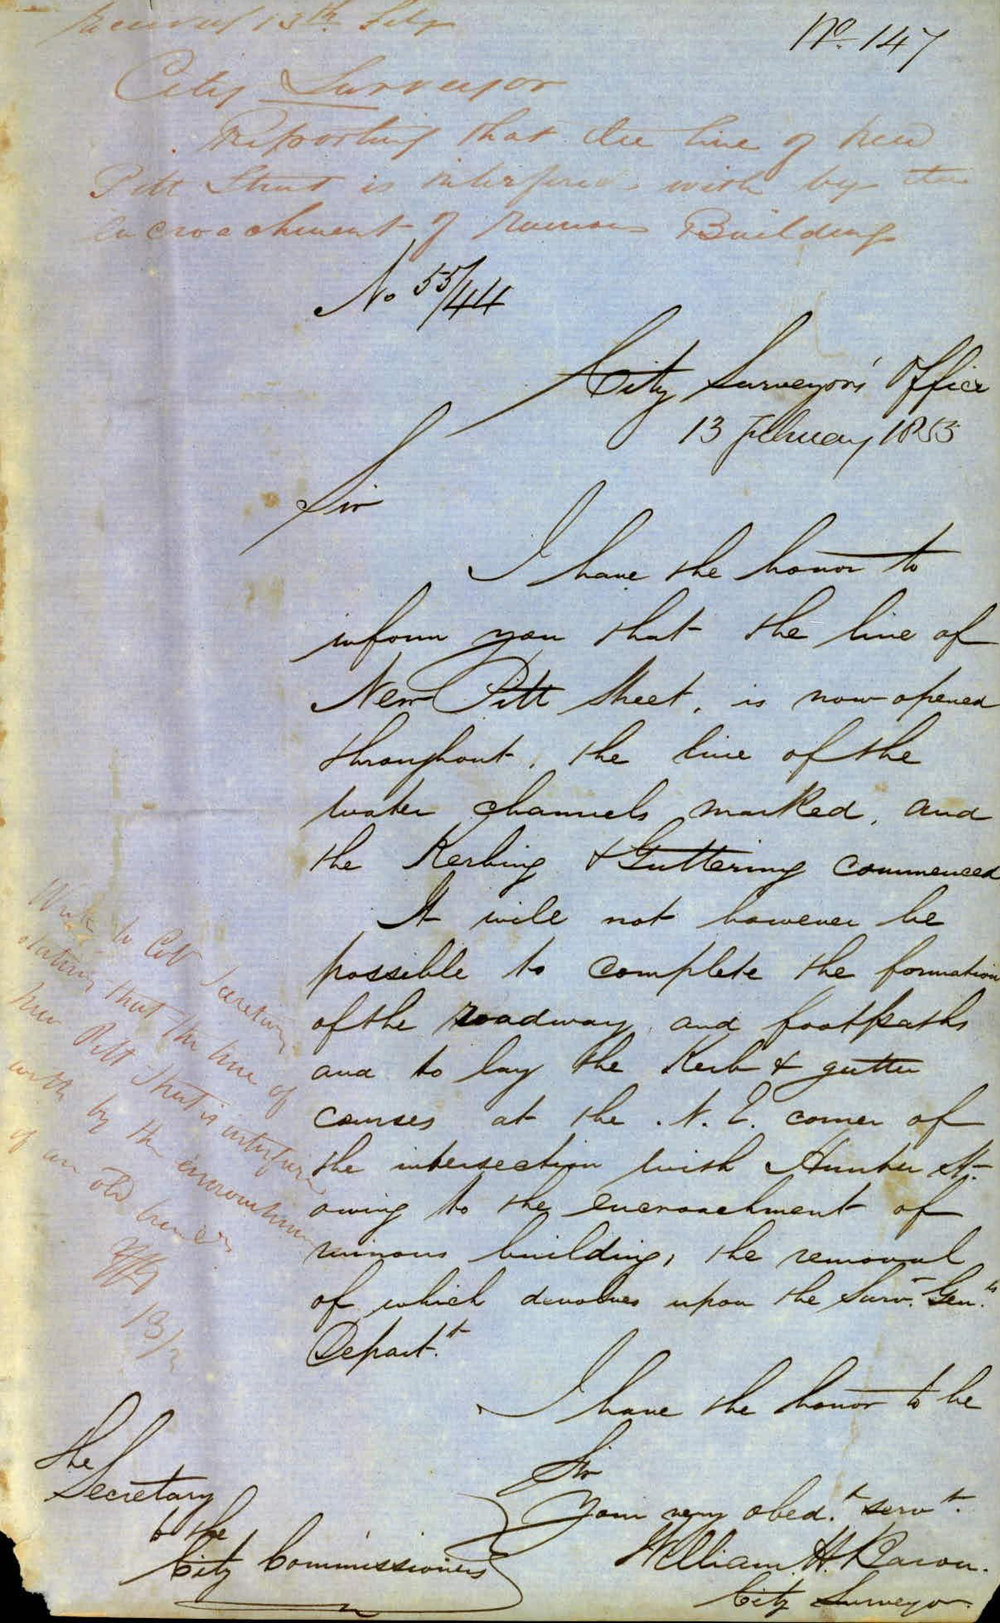 Received 13th Feby
No. 147
City Surveyor
Reporting that the line of New
Pitt Street is interfered with by the
encroachment of ruinous Building
No 55/44
City Surveyor's Office
13 February 1855
Sir
I have the honor to
inform you that the line of
New Pitt Street, is now opened
throughout, the line of the
water channels marked, and
the Kerbing & Guttering commenced
It will not however be
possible to complete the formation
of the roadway and footpaths
and to lay the Kerb & gutter
courses at the N. E. corner of
the intersection with Hunter St.
owing to the encroachment of
ruinous building, the removal
of which devolves upon the Surv. Gen.ls
Depart.t
I have the honor to be
Sir
Your very obed.t serv.t
William. H. Baron.
City Surveyor.
The
Secretary
to the
City Commissioners
Write to Col Secretary
stating that the line of
New Pitt Street is interfered
with by the encroachment
of an old
13/2